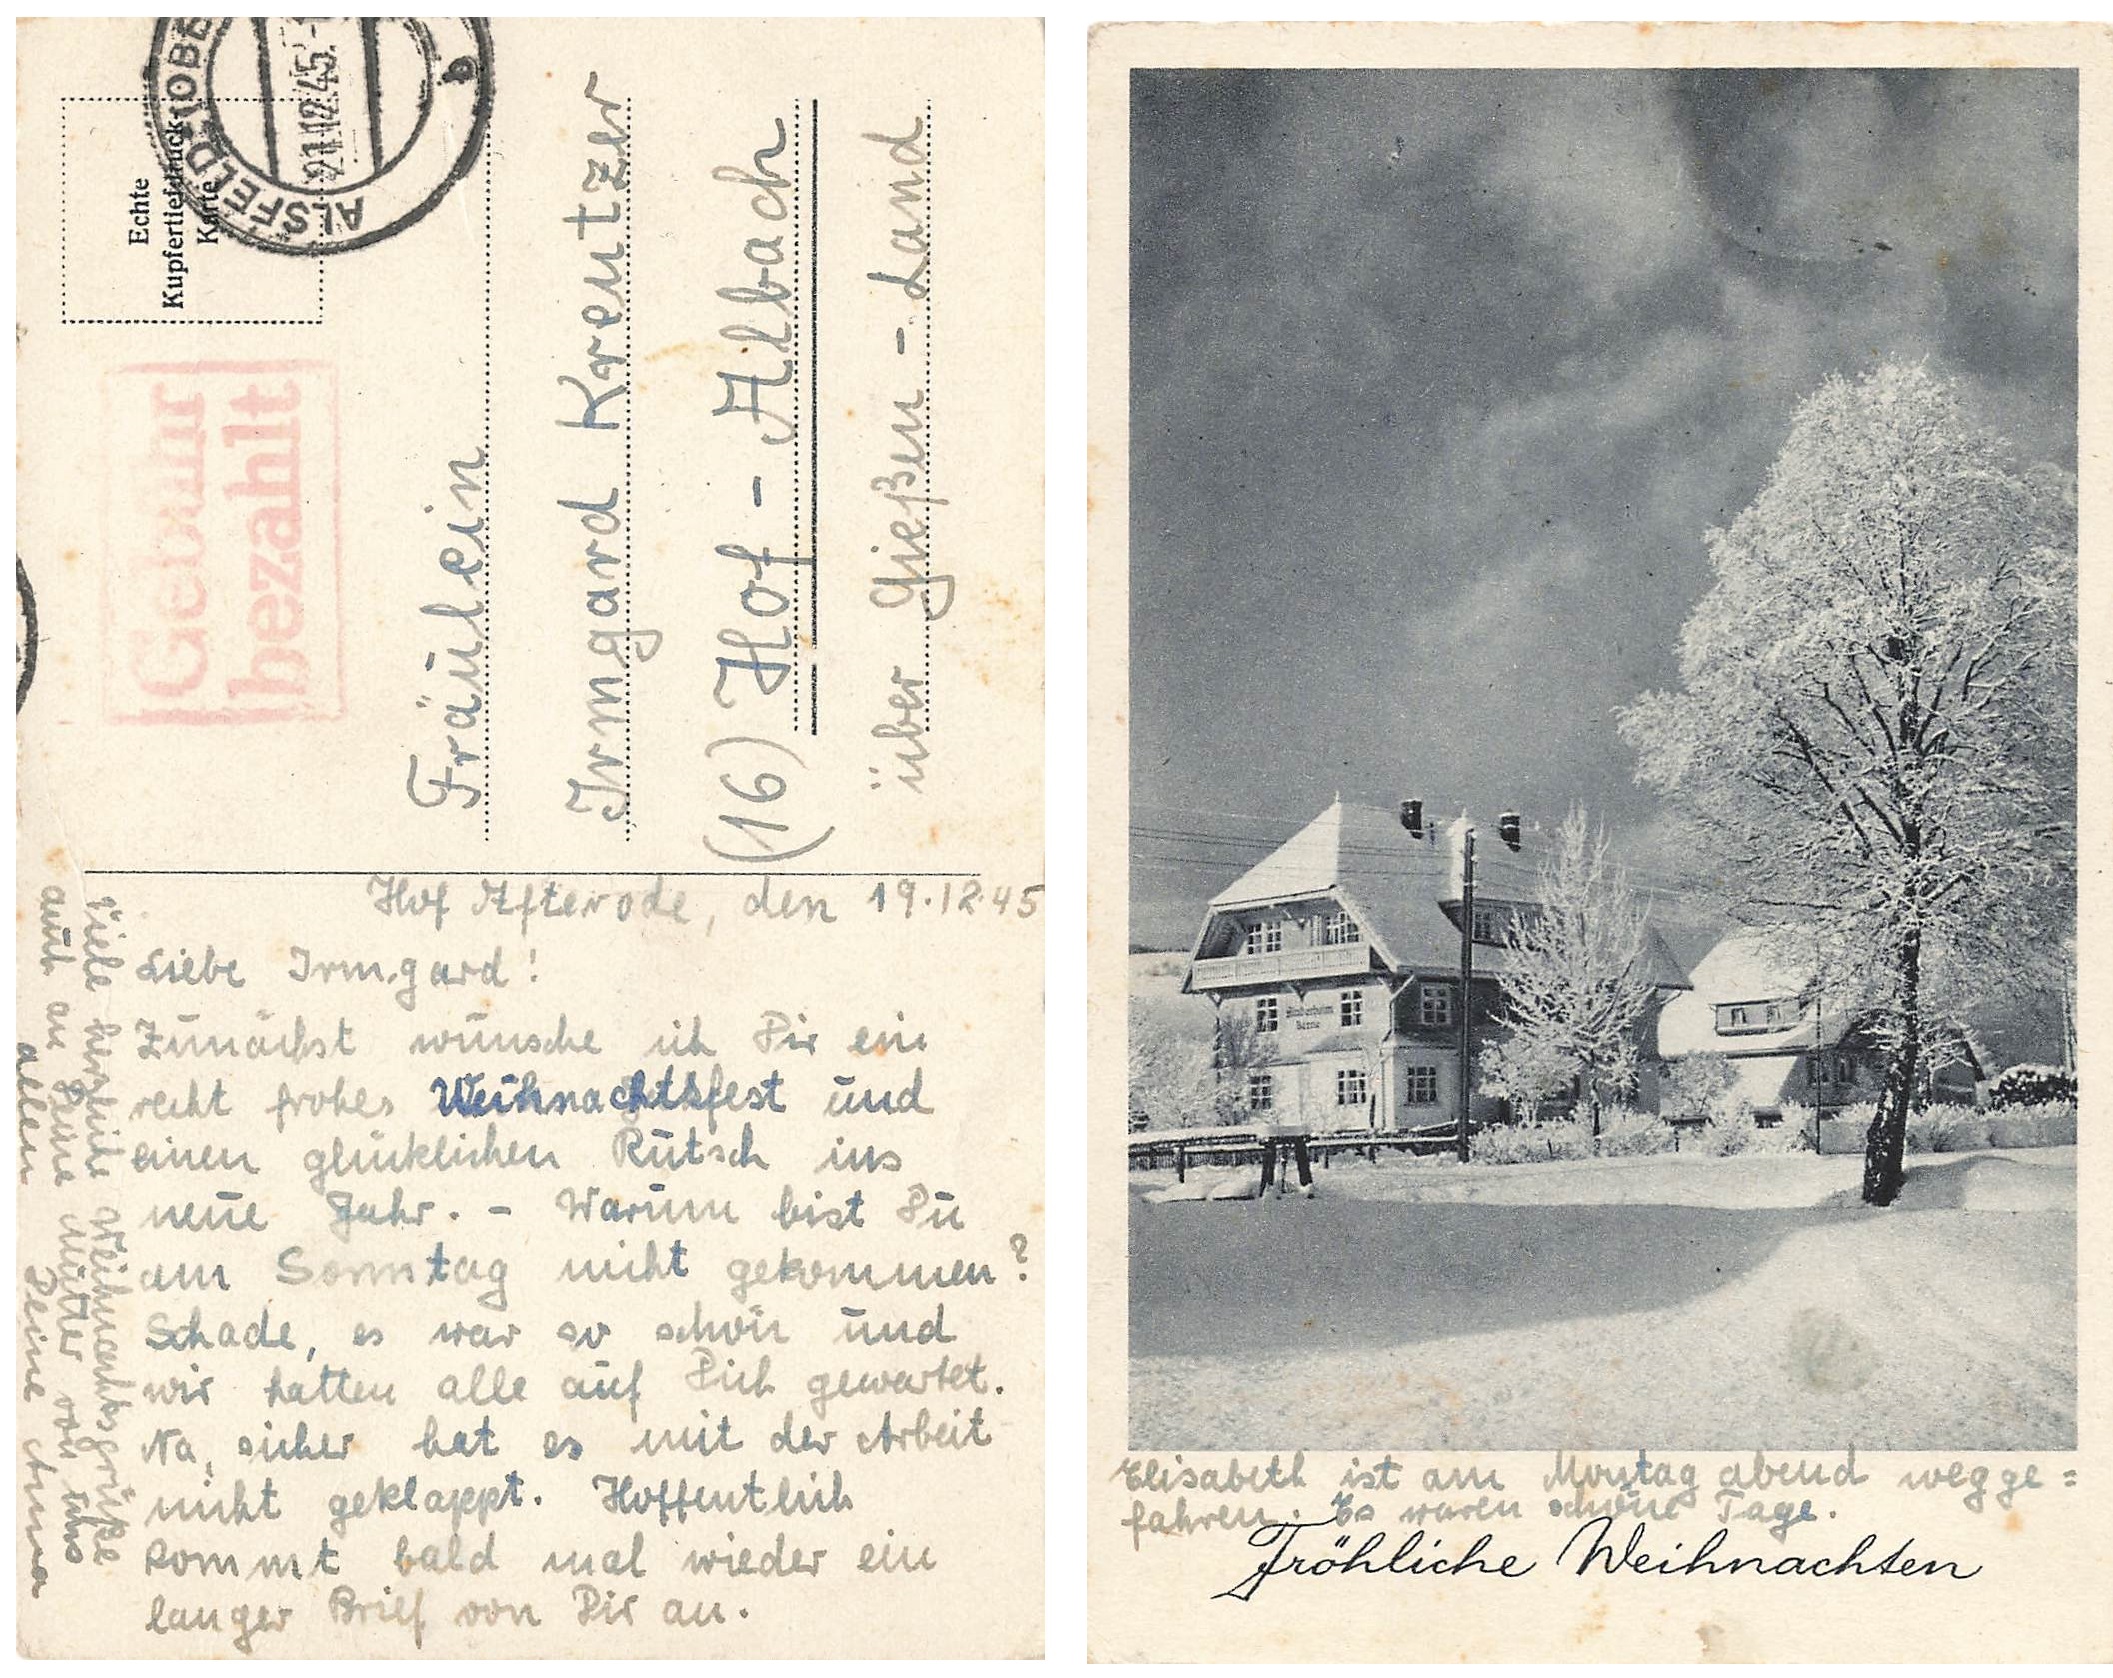 ALSFELD (OBE
21.12.45.-1
b
Echte
Kupfertiefdruck-
Karte
Gebühr
bezahlt
Fräulein
Irmgard Kreutzer
(16) Hof - Albach
über Gießen - Land
Hof Afterode, den 19.12.45
Liebe Irmgard!
Zunächst wünsche ich Dir ein
recht frohes Weihnachtsfest und
einen glücklichen Rutsch ins
neue Jahr. - Warum bist Du
am Sonntag nicht gekommen?
Schade, es war so schön und
wir hatten alle auf Dich gewartet.
Na, sicher hat es mit der Arbeit
nicht geklappt. Hoffentlich
kommt bald mal wieder ein
langer Brief von Dir an.
Viele herzliche Weihnachtsgrüße
auch an Deine Mutter von uns
allen Deine Anna
Kinderheim
Elisabeth ist am Montag abend wegge=
fahren. Es waren schöne Tage.
Fröhliche Weihnachten